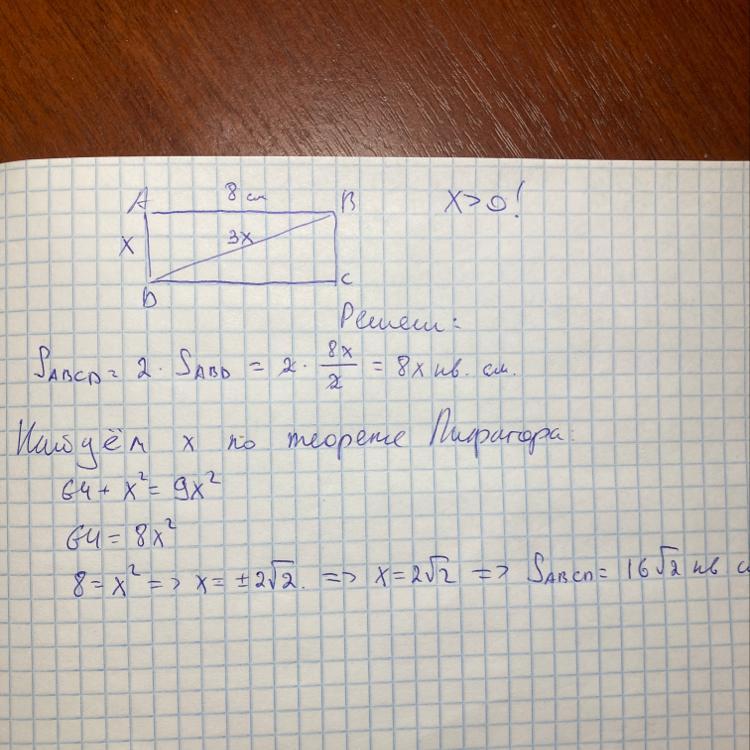 A 8 см B x>0!
x 3x
D C
Решен:
S_ABCD = 2 · S_ABD = 2 · 8x/2 = 8x кв. см.
Найдём x по теореме Пифагора:
64 + x² = 9x²
64 = 8x²
8 = x² => x = ±2√2. => x = 2√2 => S_ABCD = 16√2 кв с